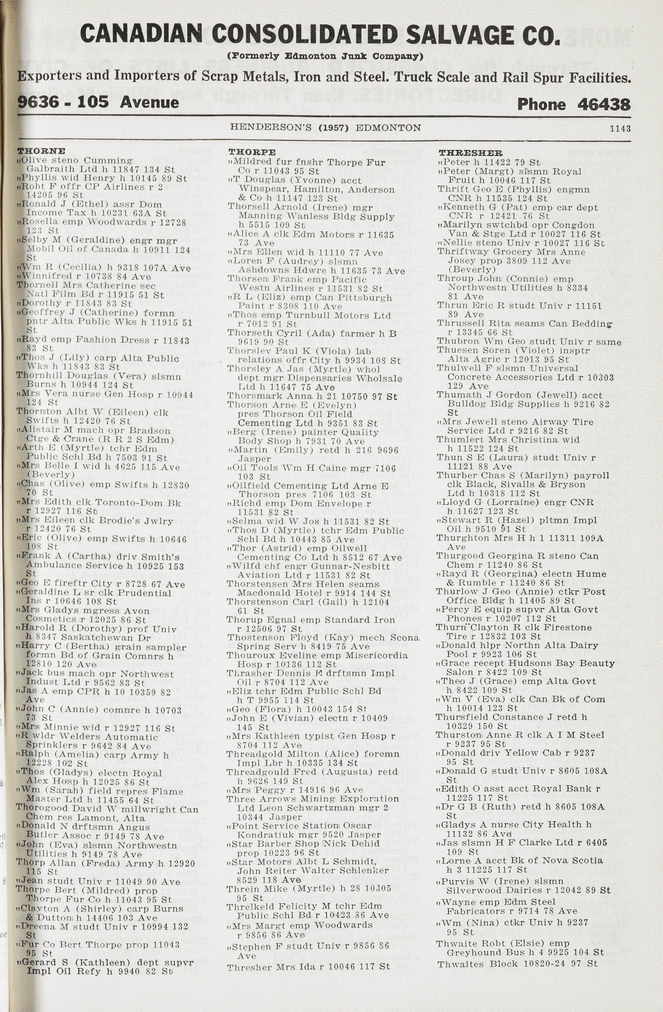 CANADIAN CONSOLIDATED SALVAGE CO.
(Formerly Edmonton Junk Company)
Exporters and Importers of Scrap Metals, Iron and Steel. Truck Scale and Rail Spur Facilities.
9636 - 105 Avenue Phone 46438
HENDERSON'S (1957) EDMONTON 1143
THORNE
"Olive steno Cumming
Galbraith Ltd h 11847 134 St
"Phyllis wid Henry h 10145 89 St
"Robt F offr CP Airlines r 2
14205 96 St
"Ronald J (Ethel) assr Dom
Income Tax h 10231 63A St
"Rosella emp Woodwards r 12728
123 St
"Selby M (Geraldine) engr mgr
Mobil Oil of Canada h 10911 124
St
"Wm R (Cecilia) h 9318 107A Ave
"Winnifred r 10738 84 Ave
Thornell Mrs Catherine sec
Natl Film Bd r 11915 51 St
"Dorothy r 11843 83 St
"Geoffrey J (Catherine) formn
pntr Alta Public Wks h 11915 51
St
"Rayd emp Fashion Dress r 11843
83 St
"Thos J (Lily) carp Alta Public
Wks h 11843 83 St
Thornhill Douglas (Vera) slsmn
Burns h 10944 124 St
"Mrs Vera nurse Gen Hosp r 10944
124 St
Thornton Albt W (Eileen) clk
Swifts h 12420 76 St
"Alistair M mach opr Bradson
Ctge & Crane (R R 2 S Edm)
"Arth E (Myrtle) tchr Edm
Public Schl Bd h 7503 91 St
"Mrs Belle I wid h 4625 115 Ave
(Beverly)
"Chas (Olive) emp Swifts h 12830
70 St
"Mrs Edith clk Toronto-Dom Bk
r 12927 116 St
"Mrs Eileen clk Brodie's Jwlry
r 12420 76 St
"Eric (Olive) emp Swifts h 10646
108 St
"Frank A (Cartha) driv Smith's
Ambulance Service h 10925 153
St
"Geo E fireftr City r 8728 67 Ave
"Geraldine L sr clk Prudential
Ins r 10646 108 St
"Mrs Gladys mgress Avon
Cosmetics r 12025 86 St
"Harold R (Dorothy) prof Univ
h 8347 Saskatchewan Dr
"Harry C (Bertha) grain sampler
formn Bd of Grain Comnrs h
12810 120 Ave
"Jack bus mach opr Northwest
Indust Ltd r 9562 83 St
"Jas A emp CPR h 10 10359 82
Ave
"John C (Annie) comnre h 10703
73 St
"Mrs Minnie wid r 12927 116 St
"R wldr Welders Automatic
Sprinklers r 9642 84 Ave
"Ralph (Amelia) carp Army h
12228 102 St
"Thos (Gladys) electn Royal
Alex Hosp h 12025 86 St
"Wm (Sarah) field repres Flame
Master Ltd h 11455 64 St
Thorogood David W millwright Can
Chem res Lamont, Alta
"Donald N drftsmn Angus
Butler Assoc r 9149 78 Ave
"John (Eva) slsmn Northwestn
Utilities h 9149 78 Ave
Thorp Allan (Freda) Army h 12920
115 St
"Jean studt Univ r 11049 90 Ave
Thorpe Bert (Mildred) prop
Thorpe Fur Co h 11043 95 St
"Clayton A (Shirley) carp Burns
& Dutton h 14406 103 Ave
"Dreena M studt Univ r 10994 132
St
"Fur Co Bert Thorpe prop 11043
95 St
"Gerard S (Kathleen) dept supvr
Impl Oil Refy h 9940 82 St
THORPE
"Mildred fur fnshr Thorpe Fur
Co r 11043 95 St
"T Douglas (Yvonne) acct
Winspear, Hamilton, Anderson
& Co h 11147 123 St
Thorsell Arnold (Irene) mgr
Manning Wanless Bldg Supply
h 5515 109 St
"Alice A clk Edm Motors r 11635
73 Ave
"Mrs Ellen wid h 11110 77 Ave
"Loren F (Audrey) slsmn
Ashdowns Hdwre h 11635 73 Ave
Thorsen Frank emp Pacific
Westn Airlines r 11531 82 St
"R L (Eliz) emp Can Pittsburgh
Paint r 8308 110 Ave
"Thos emp Turnbull Motors Ltd
r 7012 91 St
Thorseth Cyril (Ada) farmer h B
9619 90 St
Thorsley Paul K (Viola) lab
relations offr City h 9934 108 St
Thorsley A Jas (Myrtle) whol
dept mgr Dispensaries Whoisale
Ltd h 11647 75 Ave
Thorsmark Anna h 21 10750 97 St
Thorson Arne E (Evelyn)
pres Thorson Oil Field
Cementing Ltd h 9351 83 St
"Berg (Irene) painter Quality
Body Shop h 7931 70 Ave
"Martin (Emily) retd h 216 9696
Jasper
"Oil Tools Wm H Caine mgr 7106
103 St
"Oilfield Cementing Ltd Arne E
Thorson pres 7106 103 St
"Richd emp Dom Envelope r
11531 82 St
"Selma wid W Jos h 11531 82 St
"Thos D (Myrtle) tchr Edm Public
Schl Bd h 10443 85 Ave
"Thor (Astrid) emp Oilwell
Cementing Co Ltd h 8512 67 Ave
"Wilfd chf engr Gunnar-Nesbitt
Aviation Ltd r 11531 82 St
Thorstensen Mrs Helen seams
Macdonald Hotel r 9914 144 St
Thorstenson Carl (Gail) h 12104
61 St
Thorup Egnal emp Standard Iron
r 12506 97 St
Thostenson Floyd (Kay) mech Scona
Spring Serv h 8419 75 Ave
Thouroux Eveline emp Misericordia
Hosp r 10136 112 St
Thrasher Dennis E drftsmn Impl
Oil r 8704 112 Ave
"Eliz tchr Edm Public Schl Bd
h T 9955 114 St
"Geo (Flora) h 10043 154 St
"John E (Vivian) electn r 10409
145 St
"Mrs Kathleen typist Gen Hosp r
8704 112 Ave
Threadgold Milton (Alice) foremn
Impl Lbr h 10335 134 St
Threadgould Fred (Augusta) retd
h 9626 149 St
"Mrs Peggy r 14916 96 Ave
Three Arrows Mining Exploration
Ltd Leon Schwartzman mgr 2
10344 Jasper
"Point Service Station Oscar
Kondratiuk mgr 9520 Jasper
"Star Barber Shop Nick Dehid
prop 10223 96 St
"Star Motors Albt L Schmidt,
John Reiter Walter Schlenker
8529 118 Ave
Threin Mike (Myrtle) h 28 10305
95 St
Threlkeld Felicity M tchr Edm
Public Schl Bd r 10423 86 Ave
"Mrs Margt emp Woodwards
r 9856 86 Ave
"Stephen F studt Univ r 9856 86
Ave
Thresher Mrs Ida r 10046 117 St
THRESHER
"Peter h 11422 79 St
"Peter (Margt) slsmn Royal
Fruit h 10046 117 St
Thrift Geo E (Phyllis) engmn
CNR h 11535 124 St
"Kenneth G (Pat) emp car dept
CNR r 12421 76 St
"Marilyn swtchbd opr Congdon
Van & Stge Ltd r 10027 116 St
"Nellie steno Univ r 10027 116 St
Thriftway Grocery Mrs Anne
Josey prop 3809 112 Ave
(Beverly)
Throup John (Connie) emp
Northwestn Utilities h 8334
81 Ave
Thrun Eric R studt Univ r 11151
89 Ave
Thrussell Rita seams Can Bedding
r 13345 66 St
Thubron Wm Geo studt Univ r same
Thuesen Soren (Violet) insptr
Alta Agric r 12013 95 St
Thulwell F slsmn Universal
Concrete Accessories Ltd r 10303
129 Ave
Thumath J Gordon (Jewell) acct
Bulldog Bldg Supplies h 9216 82
St
"Mrs Jewell steno Airway Tire
Service Ltd r 9216 82 St
Thumlert Mrs Christina wid
h 11522 124 St
Thun S E (Laura) studt Univ r
11121 88 Ave
Thurber Chas S (Marilyn) payroll
clk Black, Sivalls & Bryson
Ltd h 10318 112 St
"Lloyd G (Lorraine) engr CNR
h 11627 123 St
"Stewart R (Hazel) pltmn Impl
Oil h 9510 91 St
Thurghton Mrs H h 1 11311 109A
Ave
Thurgood Georgina R steno Can
Chem r 11240 86 St
"Rayd R (Georgina) electn Hume
& Rumble r 11240 86 St
Thurlow J Geo (Annie) ctkr Post
Office Bldg h 11405 89 St
"Percy E equip supvr Alta Govt
Phones r 10207 112 St
Thurn Clayton R clk Firestone
Tire r 12832 103 St
"Donald hlpr Northn Alta Dairy
Pool r 9923 106 St
"Grace recept Hudsons Bay Beauty
Salon r 8422 109 St
"Theo J (Grace) emp Alta Govt
h 8422 109 St
"Wm V (Eva) clk Can Bk of Com
h 10014 123 St
Thursfield Constance J retd h
10329 150 St
Thurston Anne R clk A I M Steel
r 9237 95 St
"Donald driv Yellow Cab r 9237
95 St
"Donald G studt Univ r 8605 108A
St
"Edith O asst acct Royal Bank r
11225 117 St
"Dr G B (Ruth) retd h 8605 108A
St
"Gladys A nurse City Health h
11132 86 Ave
"Jas slsmn H F Clarke Ltd r 6405
109 St
"Lorne A acct Bk of Nova Scotia
h 3 11225 117 St
"Purvis W (Irene) slsmn
Silverwood Dairies r 12042 89 St
"Wayne emp Edm Steel
Fabricators r 9714 78 Ave
"Wm (Nina) ctkr Univ h 9237
95 St
Thwaite Robt (Elsie) emp
Greyhound Bus h 4 9925 104 St
Thwaites Block 10820-24 97 St